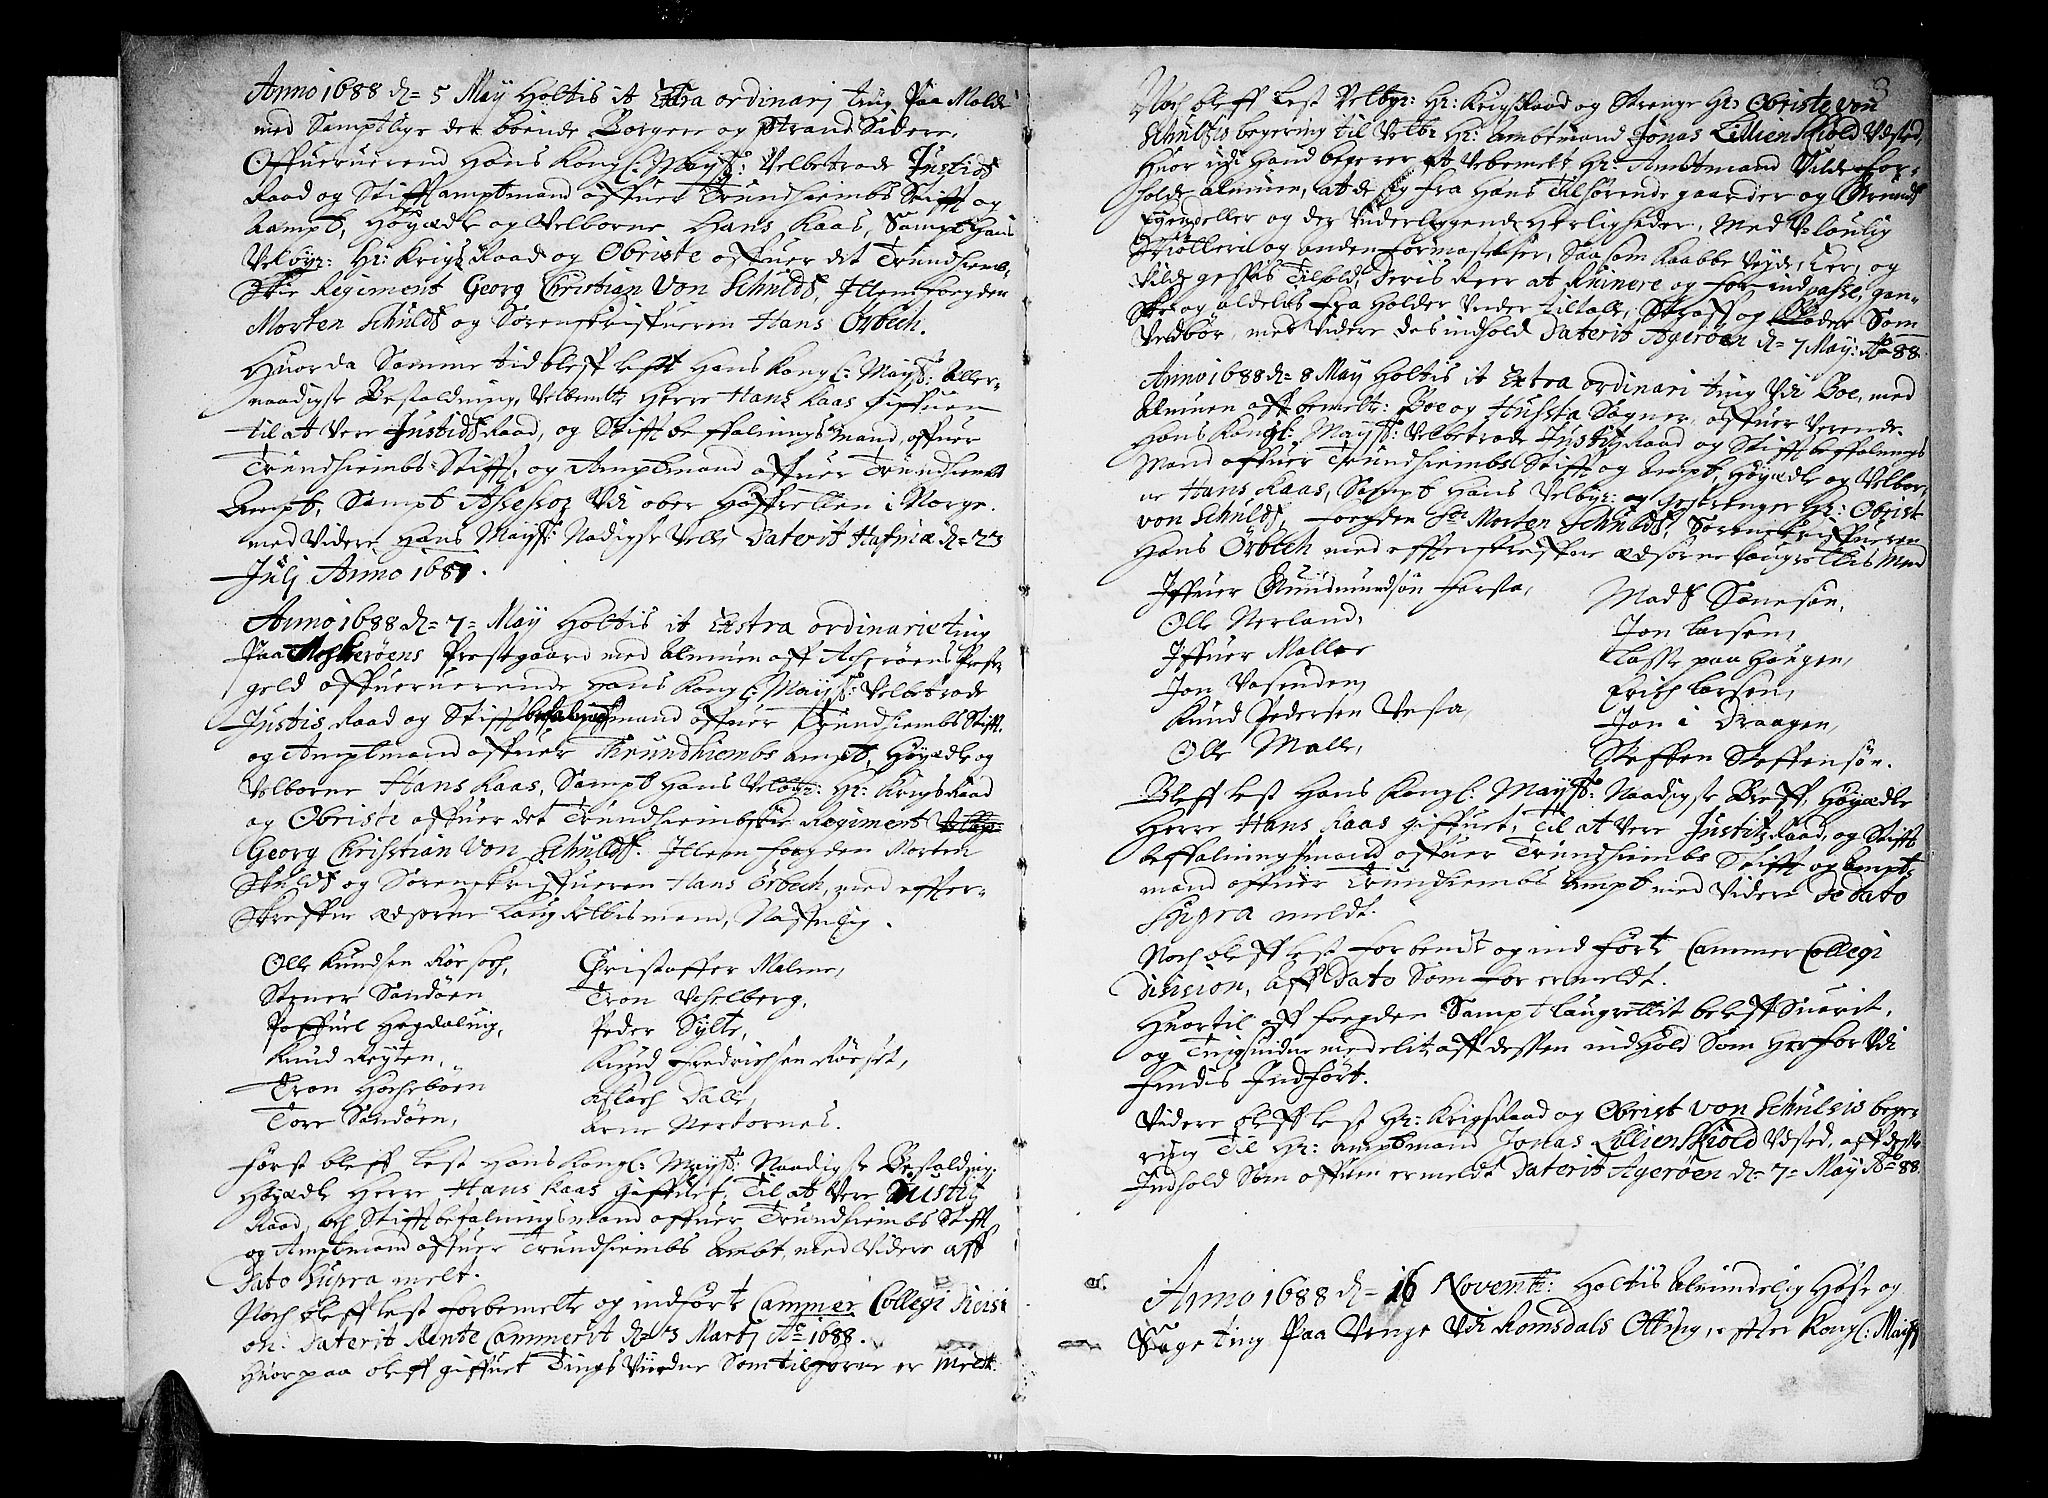 Anno 1688 d= 5 May Holtis it Extra ordinarj ting paa Molde
med Samptlige der boende Borgere og Strand Sidere.
Offueruerend Hans Kongl: Mayst: Velbetrode Justids
Raad og Stifftamptmand offuer Trundhiembs Stifft og
Ampt, Höyædle og Velborne Hans Kaas, Sampt Hans
Velbyr: Hr: Krigs Raad og Obriste offuer det Trundhiemb-
Skie Regiment Georg Christian Von Schuldt, Jllem fogden
Morten Schuldt og Sorenskriffueren Hans Örbech.
Huor da Samme tid bleff lest Hans Kongl: Mayst: Aller-
naadigste Bestaldning, Velbemelte Herre Hans Kaas giffuen
til at Vere Justids Raad, og Stifft beffalnings mand, offuer
Trundhiembs Stifft, og Amptmand offuer Trundhiembs
Ampt, Sampt Assessor Vdi ober Hoffretten i Norge.
med Videre Hans Mayst: Nadigste Velle Daterit Hafniæ d= 23
Julj Anno 1687.
Anno 1688 d= 7= May Holtis it Exstra ordinarie ting
Paa Acherøens Prestgaard med Almuen aff Acherøens Preste-
geld offueruerende Hans Kongl: Mayst: Velbetrode
Justis Raad og Stifftbefalningsmand offuer Trundhiembs Stifft.
og Amptmand offuer Thrundhiembs ampt, Höyædle og
Velborne Hans Kaas, Sampt Hans Velbyr: Hr: Krigs Raad
og Obriste offuer det Trundhiembskie Regiment
Georg Christian Von Schuldt. Jllem fogden Morten
Skuldt og Sorenskriffueren Hans Örbech, med effter-
Skreffne ædsorne Laugrettis mend, Naffnlig.
Olle Knudsen Rörsech,
Stener Sandöen
Poffuel Hegdalug,
Knud Reyten,
Tron Hochsböen
Tore Sandöen,
Christoffer Malme,
Tron Vchelberg,
Peder Sylte,
Knud Fredrichsen Röeset,
Aslach Dalle,
Arne Nertornes.
Först bleff lest Hans Kongl: Mayst: Naadigste Bestalding.
Höyædle Herre Hans Kaas giffuet, Til at Vere Justitz
Raad, och Stifftbefalningsmand offuer Trundhiembs Stifft
og Amptmand offuer Trundhiembs Ambt, med Videre aff
Dato Supra melt.
Noch bleff lest forbemelte og indförte Cammer Collegi Resisi
on: Daterit Rente Cammerit d= 13 Martj Ao 1688.
Huorpaa bleff giffuet Tings Vindne Som tilforne er meldt.
3
Noch bleff Lest Velbyr: Hr: Krigs Raad og Strenge Hr Obriste Von
Schultzis begering til Velbr Hr: Ambtmand Jonas Lillien Skiold Vdsted,
Huor udi Hand begerer at Vebemelt Hr: Amdtmand Vilde for-
holde Almuen, at de Sig fra Hans Tilhörende gaarder og Grunde
Egerpeller og der Vnderliggende Herligheder, Med Vlaulig
og anden formastelser, Saasom Kaabbe Veyde, Ler, og
Vildt geffis Tilhold, at Ruinere og for ind passe, gan-
Ske og aldeles fra Holder Vnder tiltalle, Straff og Böder Som
Vedbör, met Videre des indhold Daterit Ageröen d= 7 May: Ao 88
Anno 1688 d= 8 May Holtis it Extra ordinari ting Vdi Boe, med
Almuen aff bemelte: Boe og Hustta Sogner, offuer Verende
Hans Kongl: Mayst: Velbetrode Justitz Raad og Stifft beffalnings
Mand offuer Trundhiembs Stifft og Ampt, Höyædle og Velbor-
ne Hans Kaas, Sampt Hans Velbyr: og gestrenger Hr: Obrist
von Schuldt, fogden Sr Morten Schuldt, Sorenskriffueren
Hans Örbech med effterskreffne ædsorne Laugrettis Mend
Iffuer Gundmundsön Harsta,
Olle Nerland,
Iffuer Malloe
Jon Vasenden,
Knud Pedersen Vesta,
Olle Malle,
Madtz Sönesön,
Jon Larsen,
Lasse paa Haugen,
Erich Larsen,
Jon i Draagen,
Steffen Steffensön.
Bleff lest Hans Kongl: Mayst: Naadigste Breff, Höyædle
Herre Hans Kaas giffuet, Til at Vere Justitz Raad, og Stifft
beffalningsmand offuer Trundhiembs Stifft og Ampt-
mand offuer Trundhiembs Ampt med Videre de dato
Supra meldt.
Noch bleff lest forbendt og ind förte Cammer Collegi
Disision, Aff Dato Som for er meldt.
Huortil aff fogden Sampt laugrettit bleff Suarit,
og Tingsvindne medelit aff dessen indhold Som herfor Vdi
findis Indfört.
Videre bleff lest Hr: Krigs Raad og Obrist von Schulsis bege-
ring Til Hr: Amptmand Jonas Lillien Skiold Vdsted, aff dessen
Indhold Som offuen ermeldt Daterit Ageröen d= 7= May Ao 88
Anno 1688 d= 16 Novemb: Holtis Almindelig Höst og
Sage ting Paa Venge Vdi Romsdals Otting, effter Kongl: Mayst